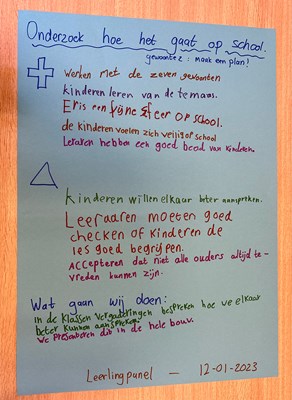 Onderzoek hoe het gaat op school.
gewoonte 2 : maak een plan!
Werken met de zeven gewoonten
kinderen leren van de temaas.
Er is een fijne sfeer op school.
de kinderen voelen zich veilig op school
Leraren hebben een goed beeld van kinderen.
kinderen willen elkaar beter aanspreken.
Leeraaren moeten goed
checken of kinderen de
les goed begrijpen.
Accepteren dat niet alle ouders altijd te-
vreden kunnen zijn.
Wat gaan wij doen:
in de klassen vergaderingen bespreken hoe we elkaar
beter kunnen aanspreken.
We presenteren dit in de hele bouw.
Leerlingpanel — 12-01-2023